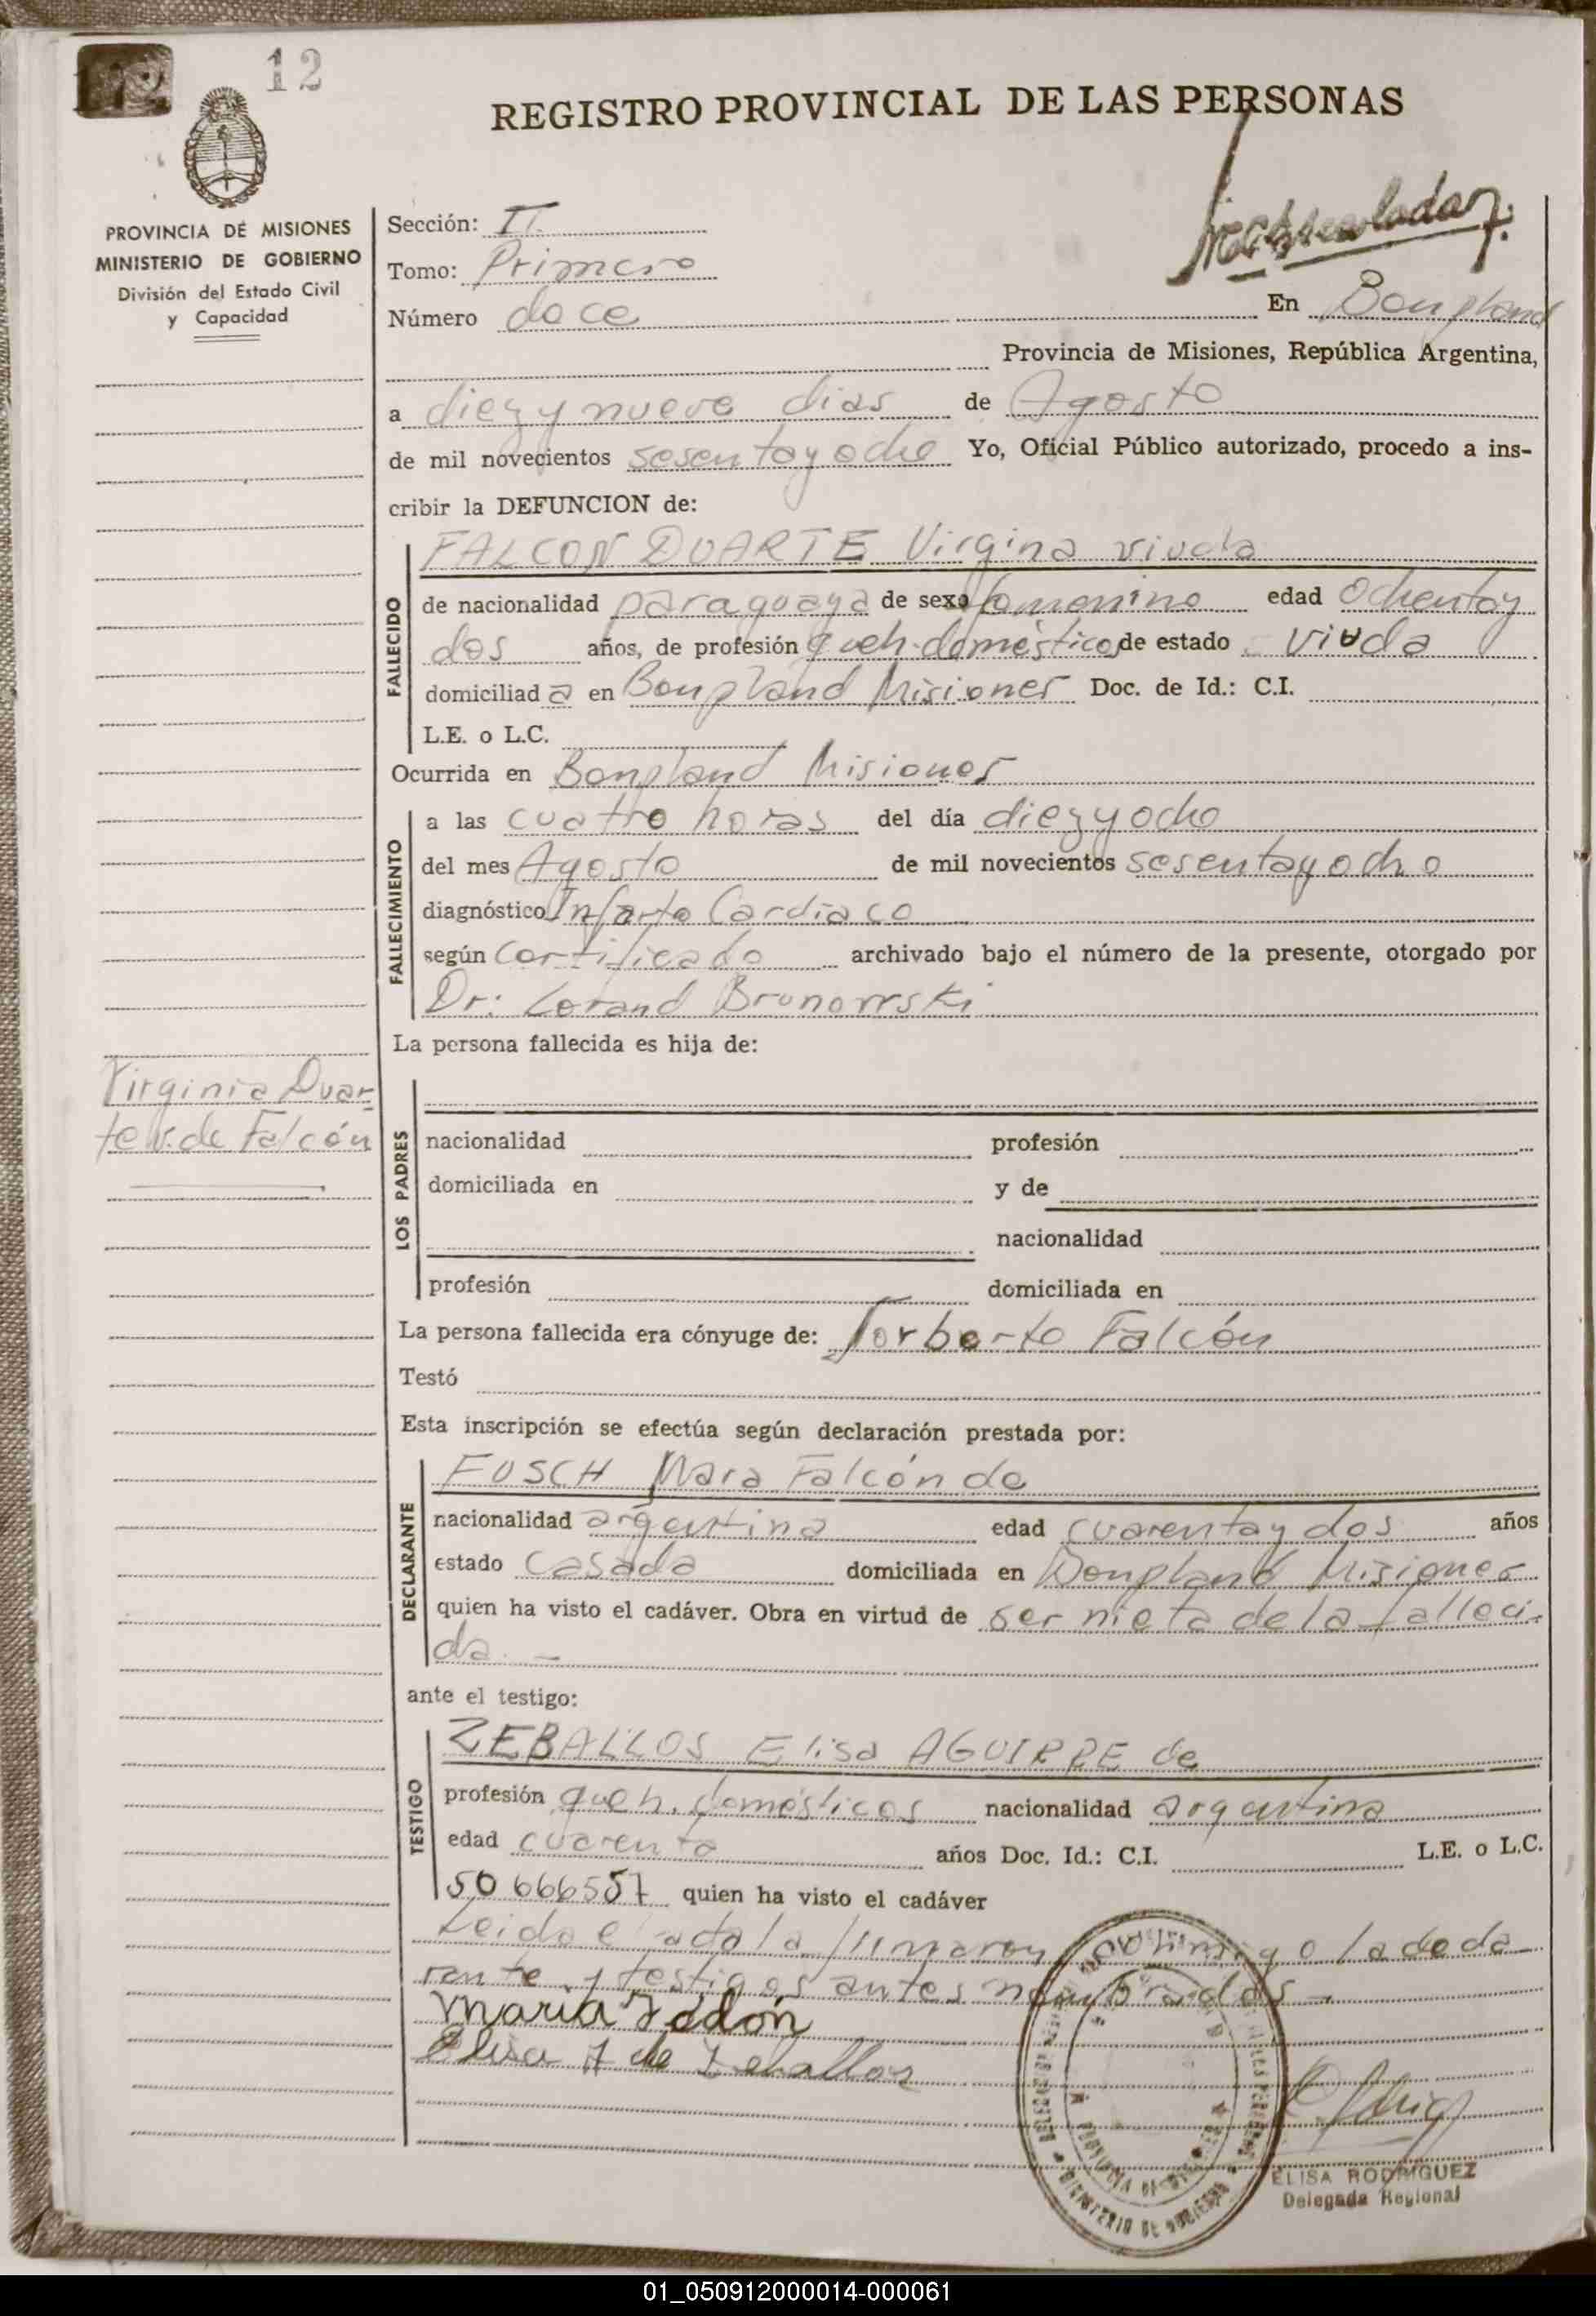 12
REGISTRO PROVINCIAL DE LAS PERSONAS
PROVINCIA DE MISIONES
MINISTERIO DE GOBIERNO
División del Estado Civil
y Capacidad
Sección: II
Tomo: Primero
Número doce
En Bonpland
Provincia de Misiones, República Argentina,
a diez y nueve dias de Agosto
de mil novecientos sesentayocho Yo, Oficial Público autorizado, procedo a ins-
cribir la DEFUNCION de:
FALCON DUARTE Virgina viuda
FALLECIDO
de nacionalidad paraguaya de sexo femenino edad Ochentay
dos años, de profesión queh. domésticos de estado viuda
domiciliad a en Bonpland Misiones Doc. de Id.: C.I.
L.E. o L.C.
Ocurrida en Bonpland Misiones
FALLECIMIENTO
a las cuatro horas del día diez y ocho
del mes Agosto de mil novecientos sesentayocho
diagnóstico Infarto Cardiaco
según Certificado archivado bajo el número de la presente, otorgado por
Dr: Lorand
La persona fallecida es hija de:
Virginia Duar
te v. de Falcón
LOS PADRES
nacionalidad profesión
domiciliada en y de
nacionalidad
profesión domiciliada en
La persona fallecida era cónyuge de: Norberto Falcón
Testó
Esta inscripción se efectúa según declaración prestada por:
DECLARANTE
FUSCH Mara Falcón de
nacionalidad argentina edad cuarentay dos años
estado Casada domiciliada en Bonpland Misiones
quien ha visto el cadáver. Obra en virtud de ser nieta de la falleci-
da. -
ante el testigo:
TESTIGO
ZEBALLOS Elisa AGUIRRE de
profesión queh. domésticos nacionalidad argentina
edad cuarenta años Doc. Id.: C.I. L.E. o L.C.
50666557 quien ha visto el cadáver
Leida el acta la firmaron conmigo la decla
rante y testigos antes nombrados -
Maria
Elisa A de Zeballos
ELISA RODRIGUEZ
Delegada Regional
01_050912000014-000061